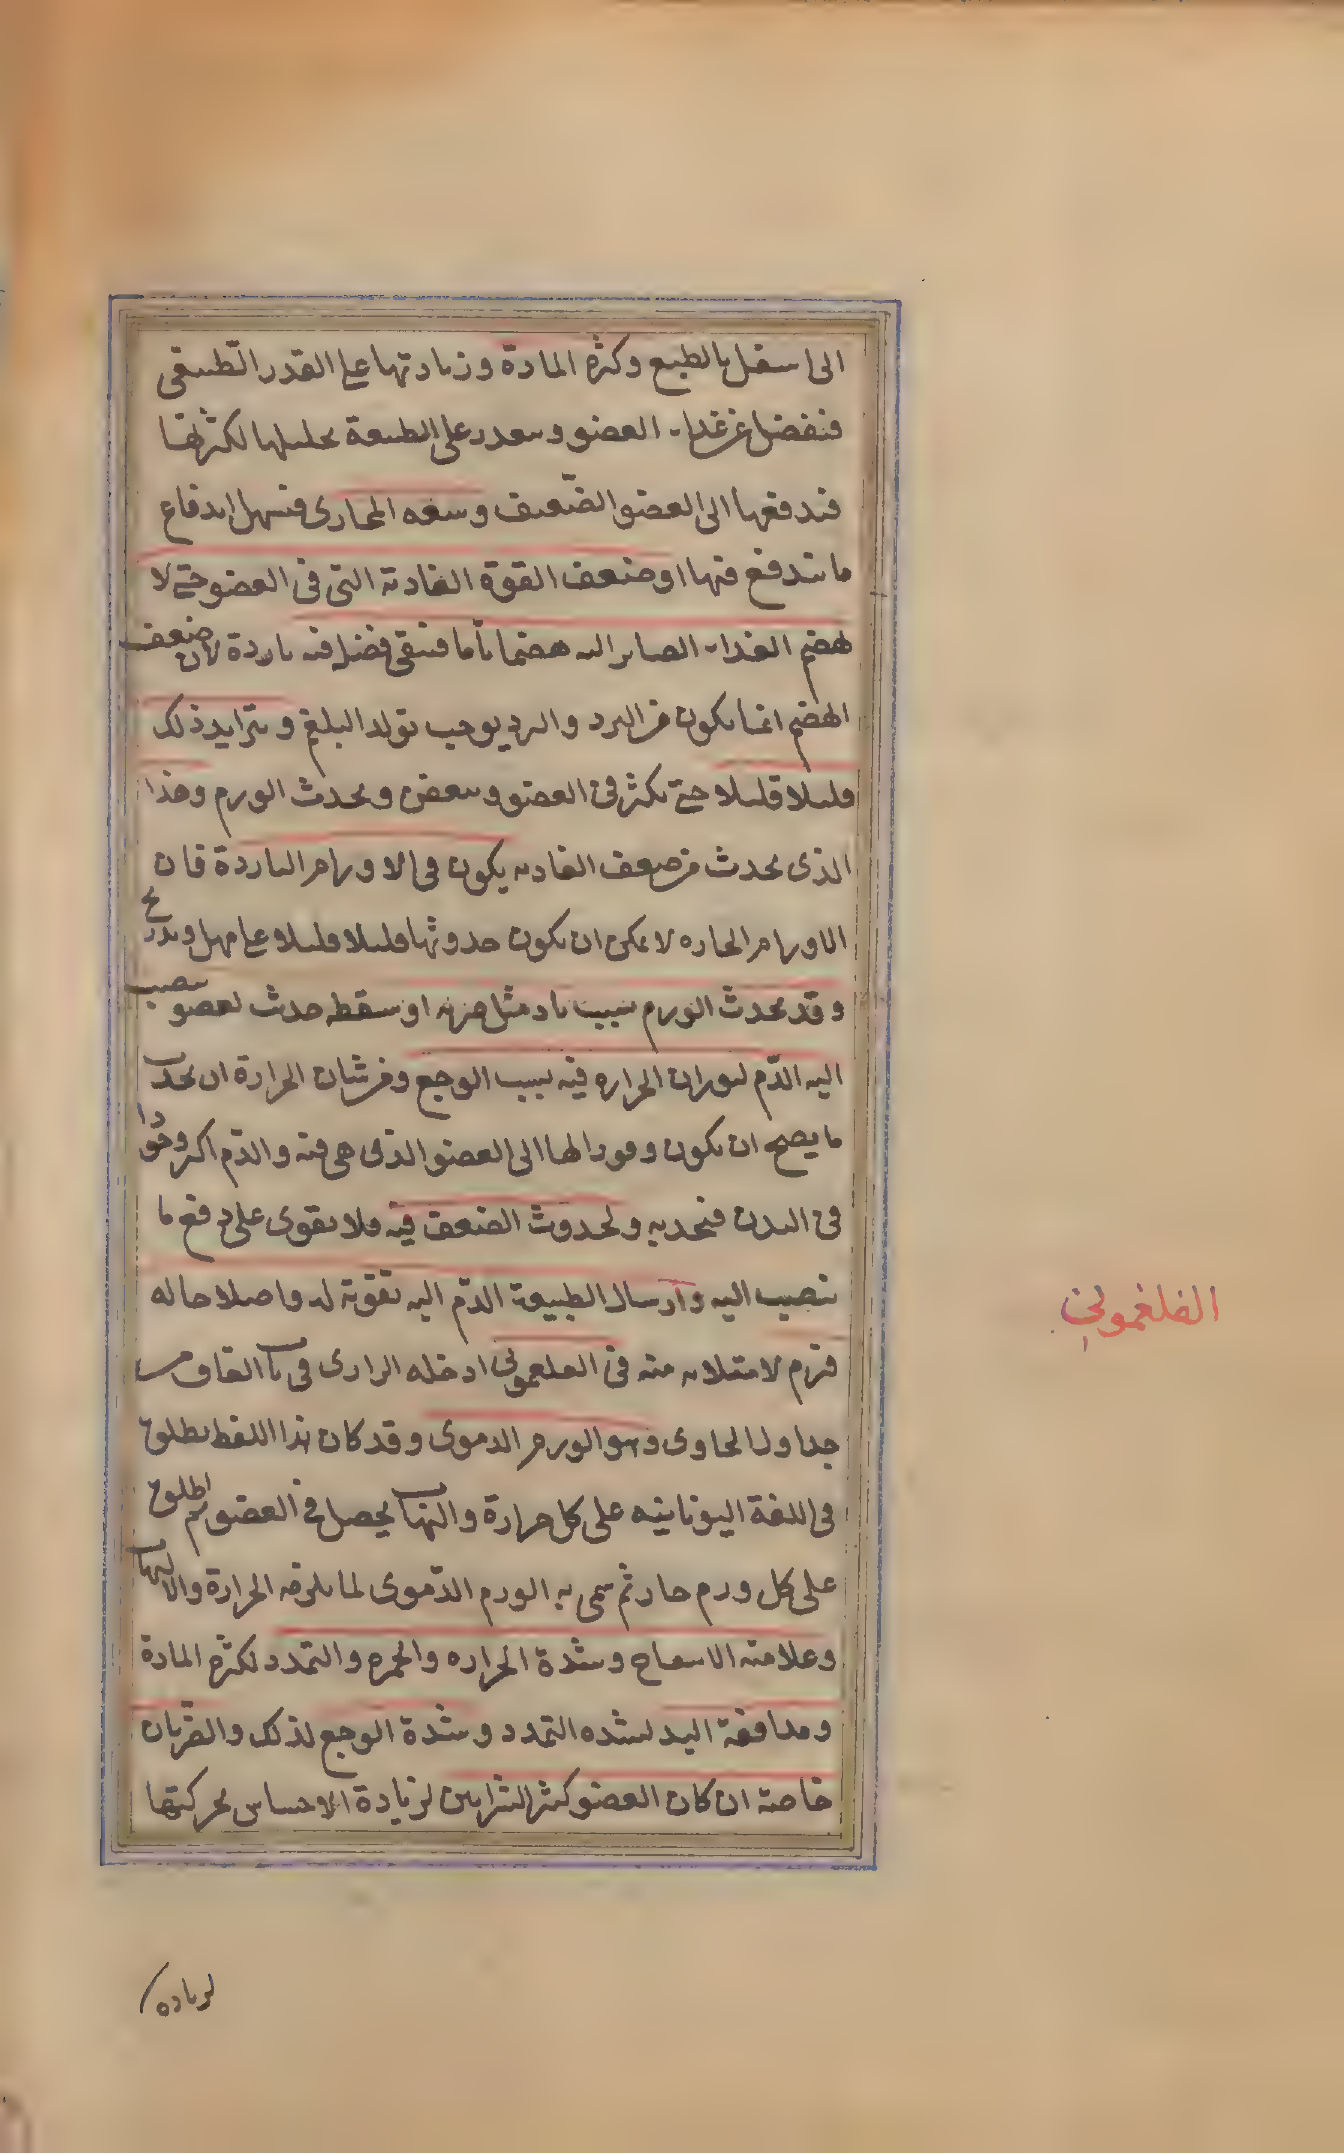 الى اسفل بالطبع وكثرة المادة وزيادتها على القدر الطبيعى
فتفضل عن غذاء العضو ويتعذر على الطبيعة تحليلها لكثرتها
فتدفعها الى العضو الضّعيف وسعه المجارى فيسهل اندفاع
ما يندفع فيها او ضعف القوّة الغاذية التى فى العضو حتى لا
يهضم الغذاء الصاير اليه هضما تاما فتبقى فضلة فيه باردة لان ضعف
الهضم انما يكون من البرد والبرد يوجب تولد البلغم ويتزايد ذلك
قليلا قليلا حتى يكثر فى العضو ويعفن ويحدث الورم وهذا
الذى يحدث من ضعف الغاذيه يكون فى الاورام الباردة فان
الاورام الحاره لا يمكن ان يكون حدوثها قليلا قليلا على مهل وتدريج
وقد يحدث الورم بسبب باد مثل ضربه او سقطه حدث لعضو ينصب
اليه الدّم لثوران الحراره فيه بسبب الوجع ومن شان الحرارة ان تجذب
ما يصح ان يكون وقودا لها الى العضو الذى هى فيه والدّم اكثر وجودا
فى البدن فتجذبه ولحدوث الضعف فيه فلا يقوى على دفع ما
ينصب اليه وارسال الطبيعة الدّم اليه تقوية له واصلاحا له
فيرم لامتلائه منه فى الفلغمونى ادخله الرازى فى باب الفاء من
جداول الحاوى وهو الورم الدموى وقد كان هذا اللفظ يطلق
فى اللغة اليونانيه على كل حرارة والتهاب يحصل فى العضو ثم اطلق
على كل ورم حار ثم سمى به الورم الدّموى لما يلزمه الحرارة والالتهاب
وعلامته الانتفاخ وشدة الحراره والحمره والتمدد لكثرة المادة
ومدافعة اليد لشده التمدد وشدة الوجع لذلك والضربان
خاصة ان كان العضو كثير الشرايين لزيادة الاحساس بحركتها
الفلغمونى
لزياده